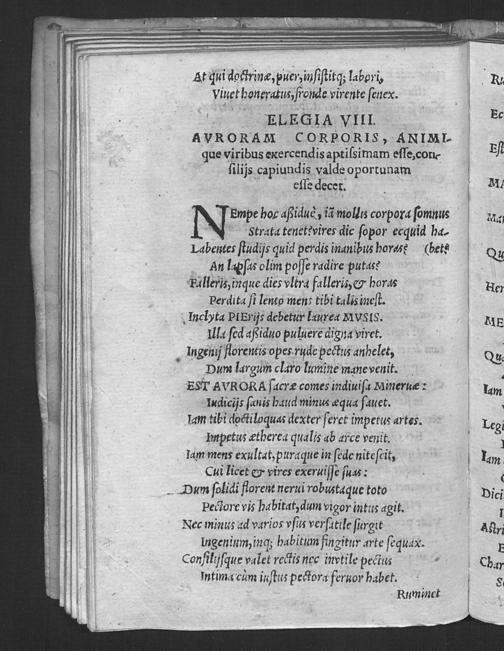 At qui doctrinæ, puer, insistitq; labori,
Viuet honoratus, fronde virente senex.
ELEGIA VIII.
AVRORAM CORPORIS, ANIMI-
que viribus exercendis aptissimam esse, con-
silijs capiundis valde oportunam
esse decet.
NEmpe hoc aßiduè, iã mollis corpora somnus
Strata tenet? vires dic sopor ecquid ha-
Labentes studijs quid perdis inanibus horas? (bet?
An lapsas olim posse radire putas?
Falleris, inque dies vltra falleris, & horas
Perdita si lento mens tibi talis inest.
Inclyta PIErijs debetur laurea MVSIS.
Illa sed aßiduo puluere digna viret.
Ingenij florentis opes rude pectus anhelet,
Dum largum claro lumine mane venit.
EST AVRORA sacræ comes indiuisa Mineruæ:
Iudicijs sanis haud minus æqua fauet.
Iam tibi doctiloquas dexter feret impetus artes.
Impetus ætherea qualis ab arce venit.
Iam mens exultat, puraque in sede nitescit,
Cui licet & vires exeruisse suas:
Dum solidi florent nerui robustaque toto
Pectore vis habitat, dum vigor intus agit.
Nec minus ad varios vsus versatile surgit
Ingenium, inq; habitum fingitur arte sequax.
Consilijsque valet rectis nec invtile pectus
Intima cùm iustus pectora feruor habet.
Ruminet
Ec
Est
MA
Mar
Qu
Her
ME
Qu
Iam
Legi
Iam
Dici
I
Astri
E
Char